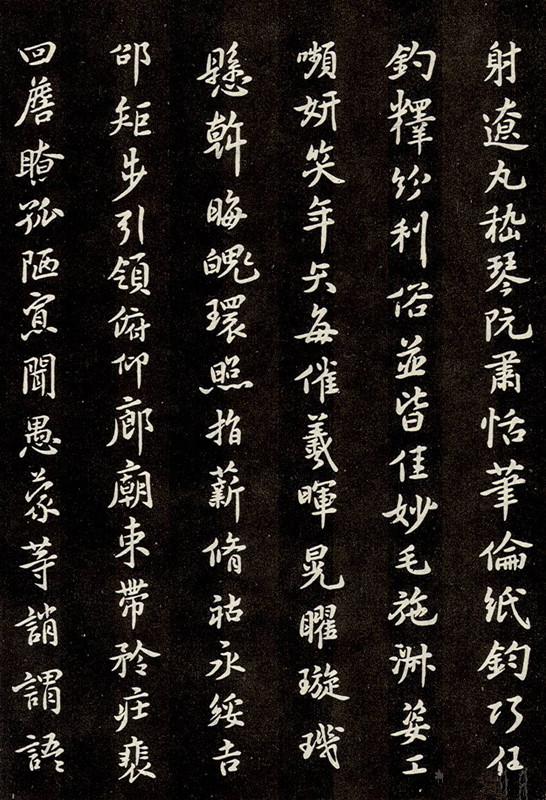 射遼丸嵇琴阮肅恬筆倫紙鈞巧任
釣釋紛利俗並皆佳妙毛施淑姿工
嚬妍笑年矢每催羲暉晃曜璇璣
懸斡晦魄環照指薪脩祜永綏吉
邵矩步引領俯仰廊廟束帶矜莊裴
回瞻瞭孤陋寡聞愚蒙等誚謂語